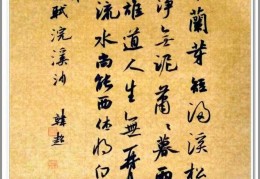 蘭芽短浸溪松
淨無泥蕭蕭暮雨
誰道人生無再
流水尚能西休將白
軾浣溪沙 韓